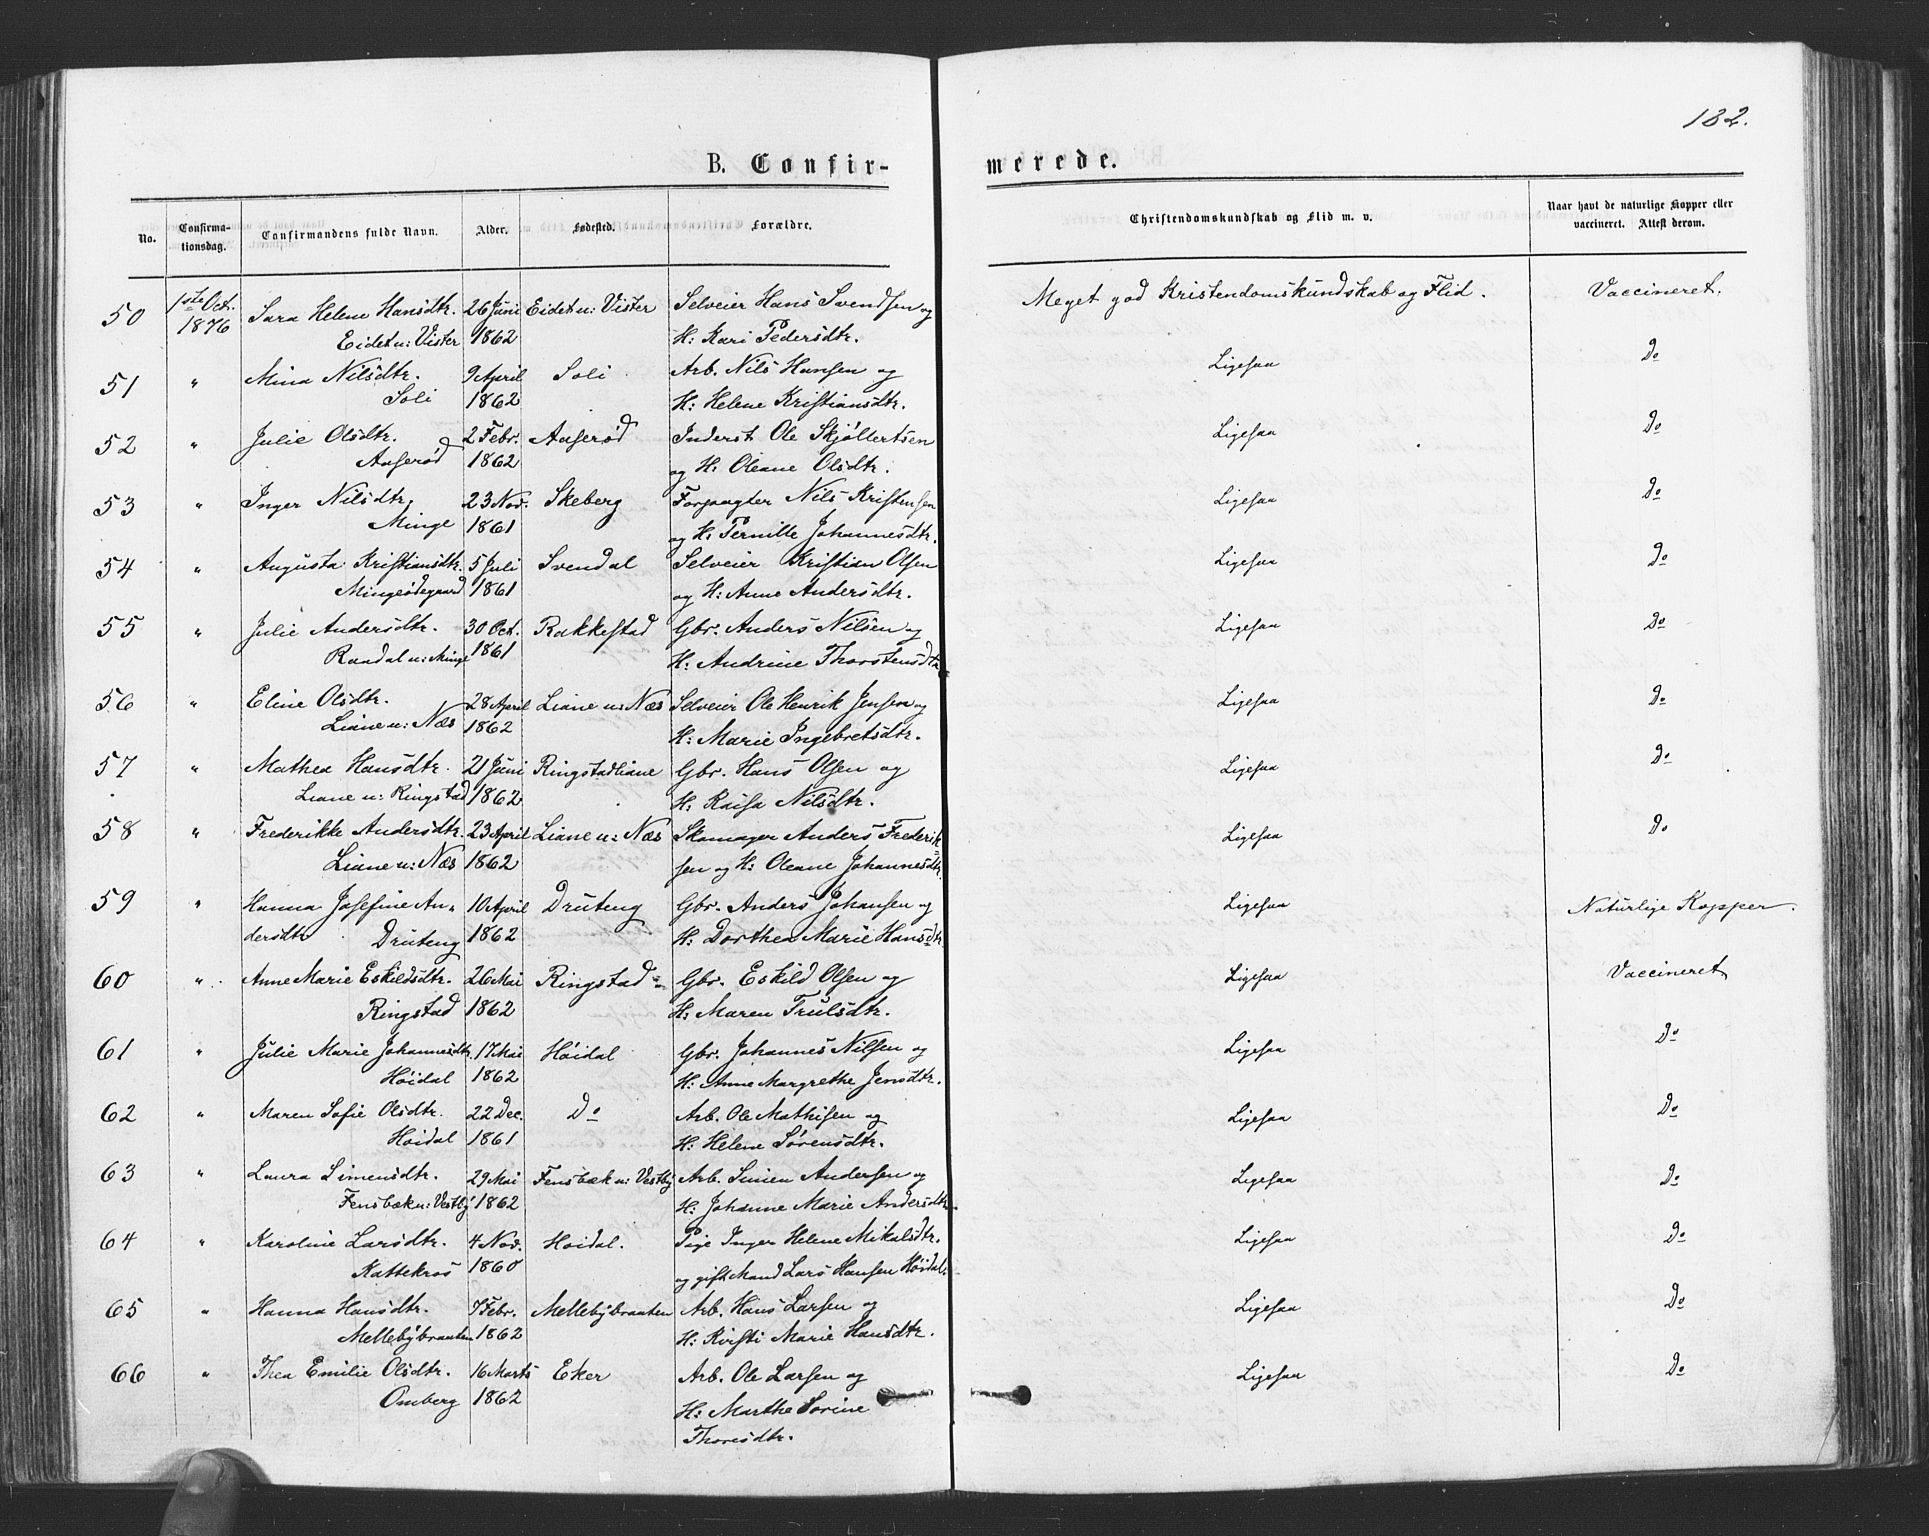 182.
B. Confir-
merede.
No.
Confirma-
tionsdag.
Confirmandens fulde Navn.
Alder.
Fødested.
Forældre.
Christendomskundskab og Flid m. v.
Naar havt de naturlige Kopper eller
vaccineret. Attest derom.
50 1ste Oct. Sara Helene Hansdtr. 26 Juni Eidet u: Vister Selveier Hans Svendsen og Meget god Kristendomskundskab og Flid. Vaccineret.
1876 Eidet u: Vister 1862 H: Kari Pedersdtr.
51 " Mina Nilsdtr. 9 April Soli Arb. Nils Hansen og Ligesaa Do
Soli 1862 H: Helene Kristiansdtr.
52 " Julie Olsdtr. 2 Febr. Aaserød Inderst Ole Skjøllertsen Ligesaa Do
Aaserød 1862 og H: Oleane Olsdtr.
53 " Inger Nilsdtr. 23 Nov. Skeberg Forpagter Nils Kristensen Ligesaa Do
Minge 1861 og H: Pernille Johannesdtr.
54 " Augusta Kristiansdtr. 5 Juli Svendal Selveier Kristian Olsen Ligesaa Do
Mingeødegaard 1861 og H: Anne Andersdtr.
55 " Julie Andersdtr. 30 Oct. Rakkestad Gbr. Anders Nilsen og Ligesaa Do
Raadal u: Minge 1861 H: Andrine Thorstensdtr.
56 " Eline Olsdtr. 28 April Liane u: Næs Selveier Ole Henrik Jensen og Ligesaa Do
Liane u: Næs 1862 H: Marie Ingebretsdtr.
57 " Mathea Hansdtr. 21 Juni Ringstadliane Gbr. Hans Olsen og Ligesaa Do
Liane u: Ringstad 1862 H: Raisa Nilsdtr.
58 " Frederikke Andersdtr. 23 April Liane u: Næs Skomager Anders Frederik- Ligesaa Do
Liane u: Næs 1862 sen og H: Oleane Johannesdtr.
59 " Hanna Josefine An- 10 April Druteng Gbr. Anders Johansen og Ligesaa Naturlige Kopper.
dersdtr Druteng 1862 H: Dorthea Marie Hansdtr.
60 " Anne Marie Eskildsdtr. 26 Mai Ringstad Gbr. Eskild Olsen og Ligesaa Vaccineret
Ringstad 1862 H: Maren Trulsdtr.
61 " Julie Marie Johannesdtr. 17 Mai Høidal Gbr. Johannes Nilsen og Ligesaa Do
Høidal 1862 H: Anne Margrethe Jensdtr.
62 " Maren Sofie Olsdtr. 22 Dec. Do Arb. Ole Mathisen og Ligesaa Do
Høidal 1861 H: Helene Sørensdtr.
63 " Laura Simensdtr. 29 Mai Fensbæk u: Vestby Arb. Simen Andersen og Ligesaa Do
Fensbæk u: Vestby 1862 H: Johanne Marie Andersdtr.
64 " Karoline Larsdtr. 4 Nov. Høidal. Pige Inger Helene Mikalsdtr. Ligesaa Do
Kattekros 1860 og gift Mand Lars Hansen Høidal.
65 " Hanna Hansdtr. 7 Febr. Mellebybraaten Arb. Hans Larsen og Ligesaa Do
Mellebybraaten 1862 H: Kirsti Marie Hansdtr.
66 " Thea Emilie Olsdtr. 16 Marts Eker Arb. Ole Larsen og Ligesaa Do
Omberg 1862 H: Marthe Sorine
Thoresdtr.